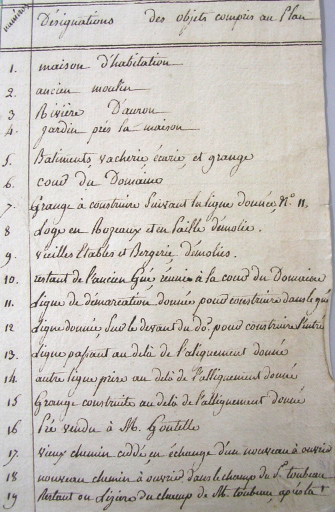 Numéros Désignations des objets compris au Plan
1. maison d'habitation
2. ancien moulin
3 Rivière D'auron
4. jardin près la maison
5. Batiments, vacherie, écurie, et grange
6. cour du Domaine
7. Grange à construire suivant la ligne donnée, N.° 11.
8 Loge en Bozeaux et en paille démolie.
9. vieilles Etables et Bergerie démolies.
10. restant de l'ancien Gué réunie à la cour du Domaine
11. Ligne de démarcation donnée, pour construire dans le gué
12 Ligne donnée, sur le devant du do. pour construire l'entrée
13. Ligne passant au delà de l'aliguement donné
14. autre ligne prise au delà de l'alliguement donné
15 Grange construite au delà de l'alliguement donné
16 Pré vendu à M. Goutelle
17. vieux chemin cédé en échange d'un nouveau à ouvrir
18 nouveau chemin à ouvrir dans le champ de S.r toubeau
19 Restant ou Lizière du champ de M. toubeau, après la